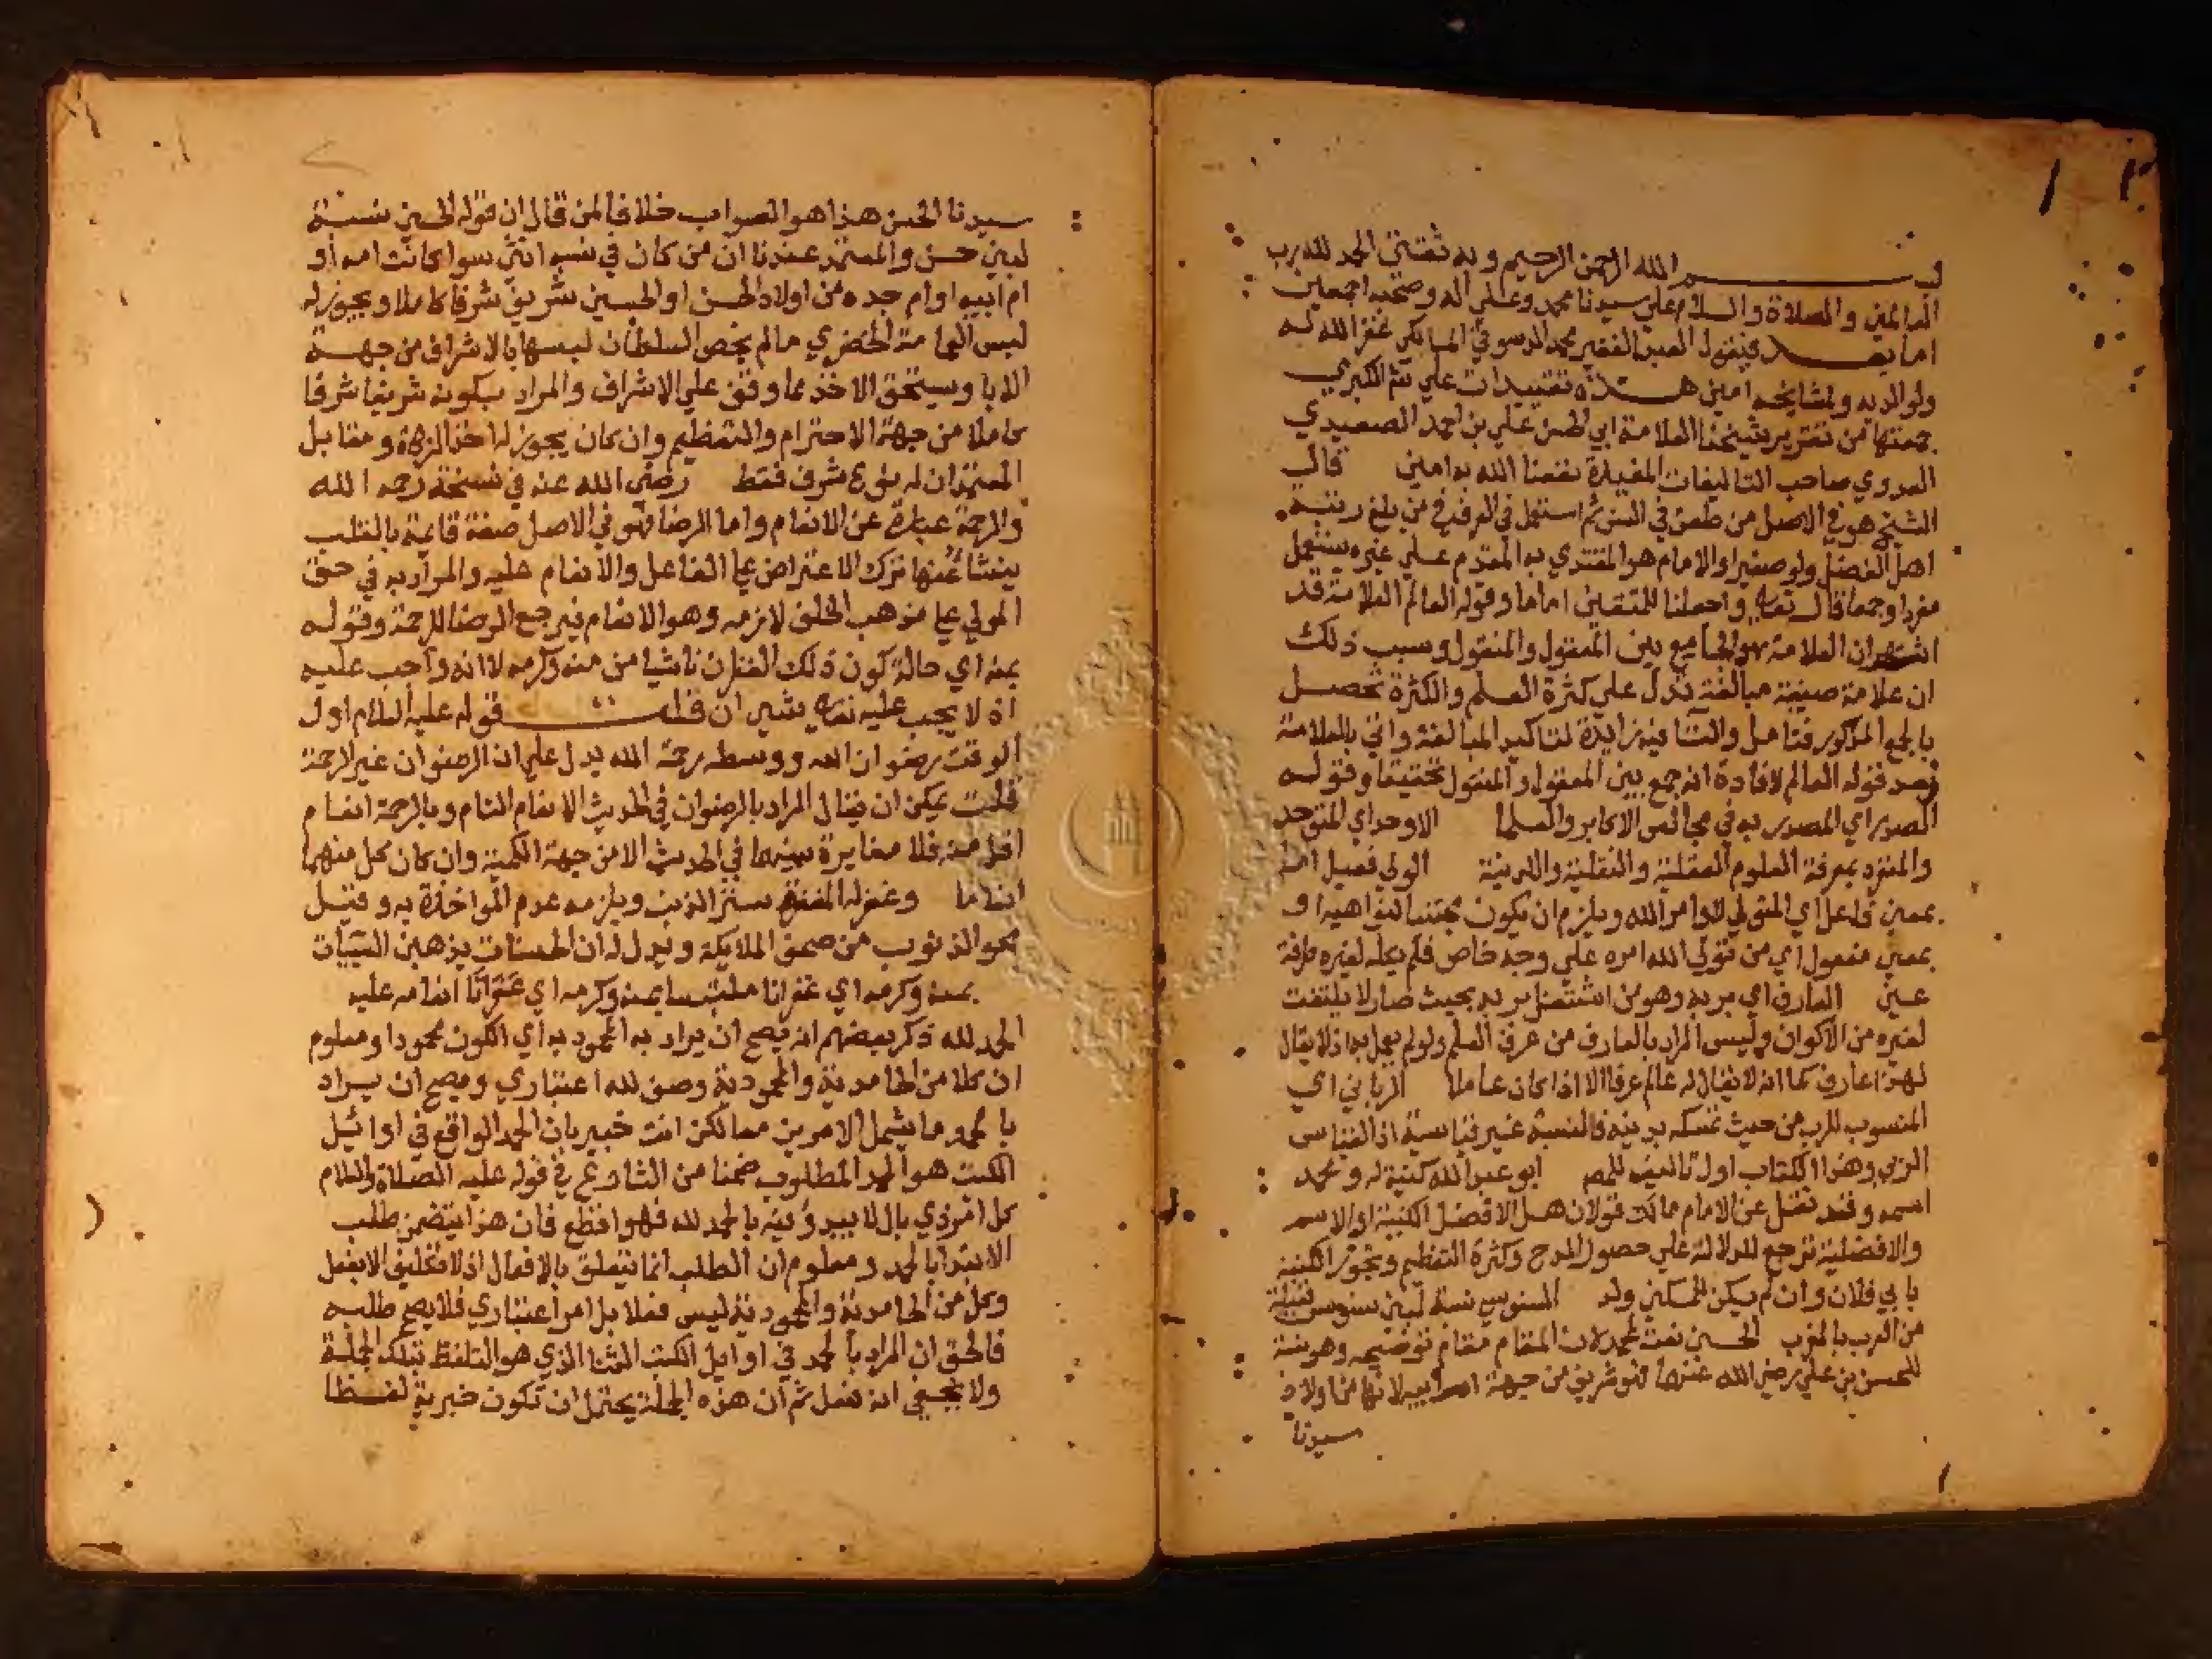 بسم الله الرحمن الرحيم وبه ثقتي الحمد لله رب
العالمين والصلاة والسلام علي سيدنا محمد وعلي اله وصحبه اجمعين
اما بعد فيقول العبد الفقير محمد الدسوقي المالكي غفر الله له
ولوالديه ولمشايخه امين هذه تقييدات علي الكبري
جمعتها من تقرير شيخنا العلامة ابي الحسن علي بن احمد الصعيدي
العدوي صاحب التاليفات المفيدة نفعنا الله به امين قال
الشيخ هو في الاصل من طعن في السن ثم استعمل في العرف في من بلغ رتبة
اهل الفضل ولو صغيرا والامام هو المقتدي به المقدم علي غيره يستعمل
مفردا وجمعا قال تعالي واجعلنا للمتقين اماما وقوله العالم العلامة قد
اشتهر ان العلامة هو الجامع بين المعقول والمنقول وسبب ذلك
ان علامة صيغة مبالغة تدل علي كثرة العلم والكثرة تحصل
بالجمع المذكور فتامل والتا فيه زايدة لتاكيد المبالغة واتي بالعلامة
بعد قوله العالم لافادة انه جمع بين المعقول والمنقول تحقيقا وقوله
الصدر اي المصدر به في مجالس الاكابر والعلما الاوحد اي المتوحد
والمنفرد بمعرفة العلوم العقلية والنقلية واللدنية الولي فعيل اما
بمعني فاعل اي المتولي لاوامر الله ويلزم ان يكون مجتنبا لنواهيه او
بمعني مفعول اي من تولي الله امره علي وجه خاص فلم يكله لغيره طرفة
عين العارف اي بربه وهو من اشتغل بربه بحيث صار لا يلتفت
لغيره من الاكوان وليس المراد بالعارف من عرف العلم ولو لم يعمل به اذ لا يقال
لهذا عارف كما انه لا يقال له عالم عرفا الا اذا كان عاملا الرباني اي
المنسوب للرب من حيث تمسكه بدينه فالنسبة غير قياسية اذ القياس
الربي وهذا الكتاب اول تاليف للمص ابو عبد الله كنية له ومحمد
اسمه وقد نقل عن الامام مالك قولان هل الافضل الكنية او الاسم
والافضلية ترجع للدلالة علي حصول المدح وكثرة التعظيم وتجوز الكنية
بابي فلان وان لم يكن للمكني ولد السنوسي نسبة لبني سنوس قبيلة
من العرب بالمغرب الحسني نعت لمحمد لان المقام مقام توضيح وهو نسبة
للحسن بن علي رضي الله عنهما فهو شريف من جهة ام ابيه لانها من اولاد
سيدنا
سيدنا الحسن هذا هو الصواب خلافا لمن قال ان قوله الحسني نسبة
لبني حسن والمعتمد عندنا ان من كان في نسبه انثي سوا كانت امه او
ام ابيه او ام جده من اولاد الحسن او الحسين شريف شرفا كاملا ويجوز له
لبس العمامة الخضري ما لم يخص السلطان لبسها بالاشراف من جهة
الابا ويستحق الاخذ مما وقف علي الاشراف والمراد بكونه شريفا شرفا
كاملا من جهة الاحترام والتعظيم وان كان يجوز له اخذ الزكاة ومقابل
المعتمد ان له نوع شرف فقط رضي الله عنه في نسخة رحمه الله
والرحمة عبارة عن الانعام واما الرضا فهو في الاصل صفة قايمة بالقلب
ينشا عنها ترك الاعتراض علي الفاعل والانعام عليه والمراد به في حق
المولي علي مذهب الخلف لازمه وهو الانعام فيرجع الرضا للرحمة وقوله
بمنه اي حالة كون ذلك الغفران ناشيا من منه وكرمه لا انه واجب عليه
اذ لا يجب عليه تعالي شي ان قلت قوله عليه السلام اول
الوقت رضوان الله ووسطه رحمة الله يدل علي ان الرضوان غير الرحمة
قلت يمكن ان يقال المراد بالرضوان في الحديث الانعام التام وبالرحمة انعام
اقل منه فلا مغايرة بينهما في الحديث الا من جهة الكمية وان كان كل منهما
انعاما وغفر له المغفرة ستر الذنب ويلزمه عدم المواخذة به وقيل
محو الذنوب من صحف الملايكة ويدل له ان الحسنات يذهبن السيئات
بمنه وكرمه اي غفرانا ملتبسا بمنه وكرمه اي انعامه عليه
الحمد لله ذكر بعضهم انه يصح ان يراد به المحمود به اي الكون محمودا ومعلوم
ان كلا من الحامدية والمحمودية وصف لله اعتباري ويصح ان يراد
بالحمد ما يشمل الامرين معا لكن انت خبير بان الحمد الواقع في اوائيل
الكتب هو الحمد المطلوب ضمنا من الشارع في قوله عليه الصلاة والسلام
كل امر ذي بال لا يبدؤ فيه بالحمد لله فهو اقطع فان هذا يتضمن طلب
الابتدا بالحمد ومعلوم ان الطلب انما يتعلق بالافعال اذ لا تكليف الا بفعل
وكل من الحامدية والمحمودية ليس فعلا بل امر اعتباري فلا يصح طلبه
فالحق ان المراد بالحمد في اوايل الكتب الثنا الذي هو التلفظ بتلك الجملة
ولا يخفي انه فعل ثم ان هذه الجملة يحتمل ان تكون خبرية لفظا